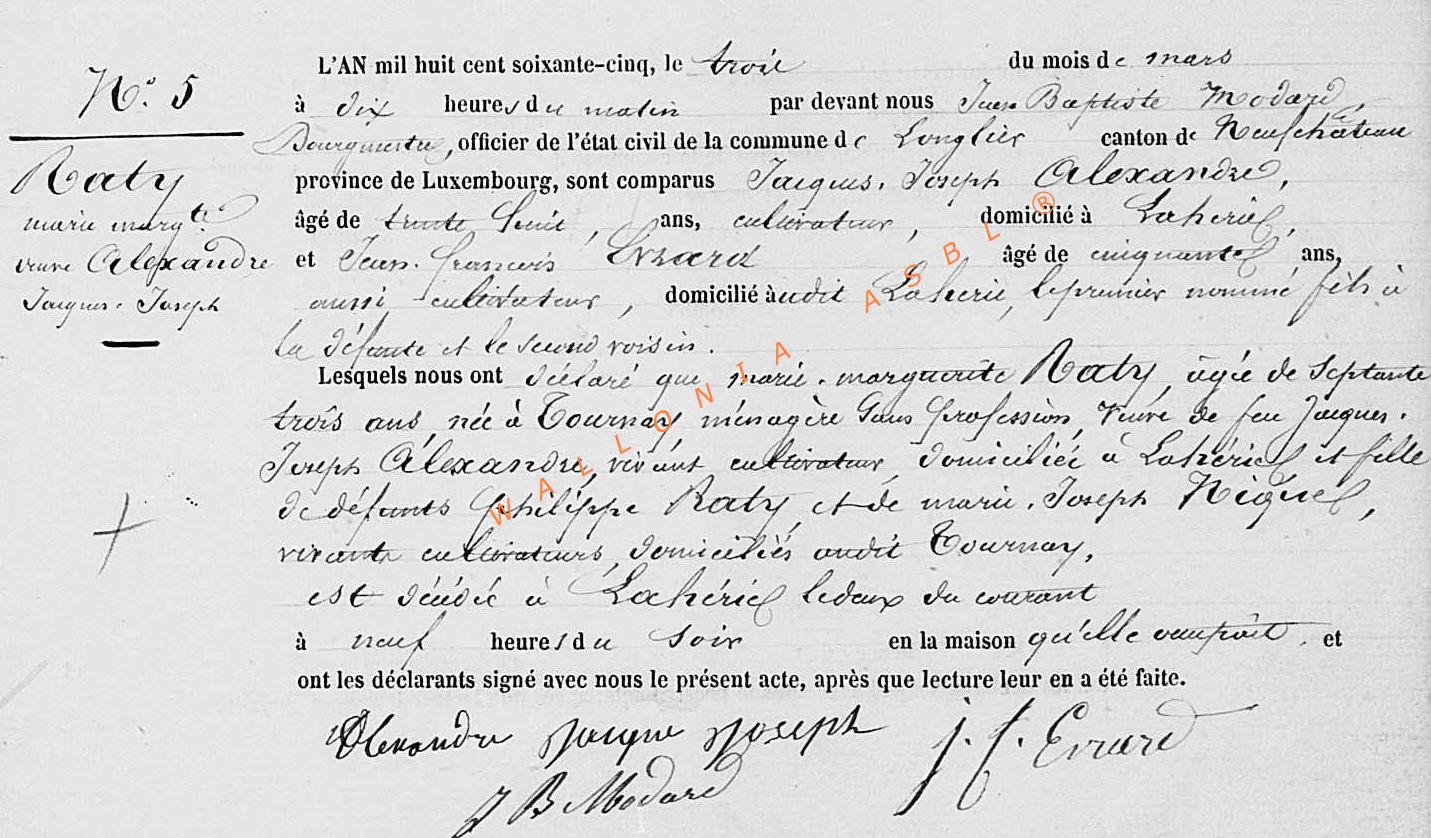 N.° 5
Raty
marie marg.te
veuve Alexandre
Jacques-Joseph
L'AN mil huit cent soixante-cinq, le trois du mois de mars
à dix heures du matin par devant nous Jean Baptiste Modard,
Bourgmestre, officier de l'état civil de la commune de Longlier canton de Neufchâteau
province de Luxembourg, sont comparus Jacques-Joseph Alexandre,
âgé de trente huit, ans, cultivateur, domicilié à Lahérie,
et Jean-françois Evrard âgé de cinquante ans,
aussi cultivateur, domicilié audit Lahérie, le premier nommé fils à
la défunte et le second voisin.
Lesquels nous ont déclaré que marie-marguerite Raty, âgée de septante
trois ans, née à Tournay, ménagère sans profession, veuve de feu Jacques-
Joseph Alexandre, vivant cultivateur, domiciliée à Lahérie et fille
de défunts Philippe Raty, et de marie-Joseph Niquel,
vivants cultivateurs, domiciliés audit Tournay,
est décédée à Lahérie le deux du courant
à neuf heures du soir en la maison qu'elle occupait, et
ont les déclarants signé avec nous le présent acte, après que lecture leur en a été faite.
Alexandre Jacque Joseph J. f. Evrard
J B Modard
WALLONIA ASBL ®